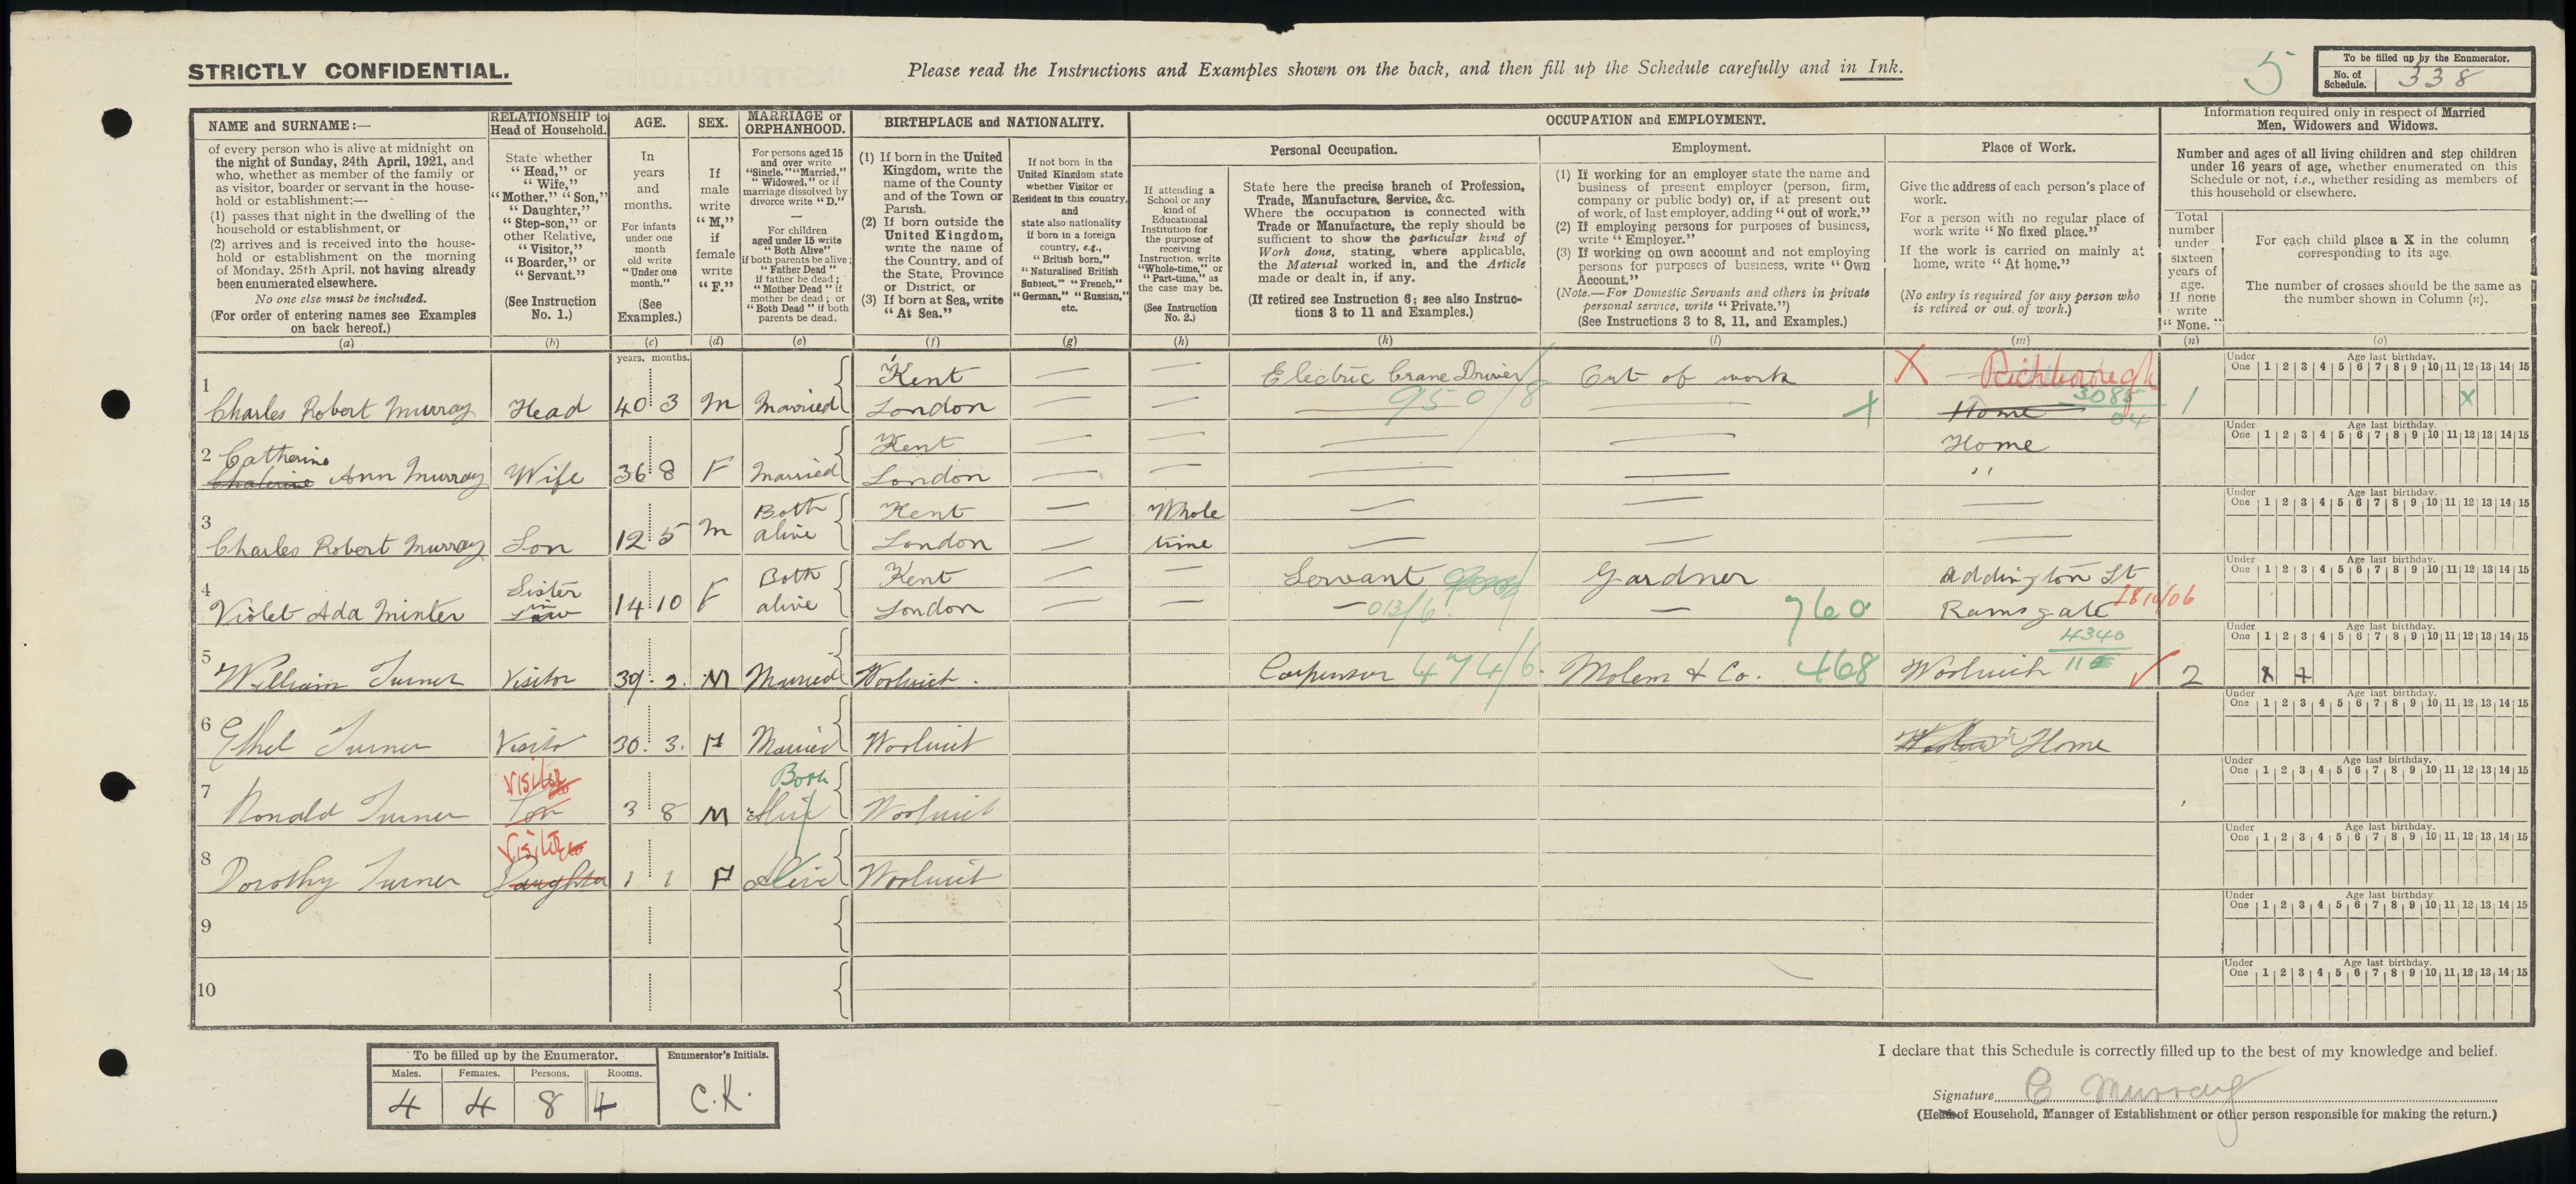 STRICTLY CONFIDENTIAL.
Please read the Instructions and Examples shown on the back, and then fill up the Schedule carefully and in Ink.
5
To be filled up by the Enumerator.
No. of Schedule. 338
NAME and SURNAME:—
of every person who is alive at midnight on
the night of Sunday, 24th April, 1921, and
who, whether as member of the family or
as visitor, boarder or servant in the house-
hold or establishment:—
(1) passes that night in the dwelling of the
household or establishment, or
(2) arrives and is received into the house-
hold or establishment on the morning
of Monday, 25th April, not having already
been enumerated elsewhere.
No one else must be included.
(For order of entering names see Examples
on back hereof.)
(a)
RELATIONSHIP to
Head of Household.
State whether
"Head," or
"Wife,"
"Mother," "Son,"
"Daughter,"
"Step-son," or
other Relative,
"Visitor,"
"Boarder," or
"Servant."
(See Instruction
No. 1.)
(b)
AGE.
In
years
and
months.
For infants
under one
month
old write
"Under one
month."
(See
Examples.)
(c)
SEX.
If
male
write
"M,"
if
female
write
"F."
(d)
MARRIAGE or
ORPHANHOOD.
For persons aged 15
and over write
"Single," "Married,"
"Widowed," or if
marriage dissolved by
divorce write "D."
—
For children
aged under 15 write
"Both Alive"
if both parents be alive;
"Father Dead"
if father be dead;
"Mother Dead" if
mother be dead; or
"Both Dead" if both
parents be dead.
(e)
BIRTHPLACE and NATIONALITY.
(1) If born in the United
Kingdom, write the
name of the County
and of the Town or
Parish.
(2) If born outside the
United Kingdom,
write the name of
the Country, and of
the State, Province
or District, or
(3) If born at Sea, write
"At Sea."
(f)
If not born in the
United Kingdom state
whether Visitor or
Resident in this country,
and
state also nationality
if born in a foreign
country, e.g.,
"British born,"
"Naturalised British
Subject," "French,"
"German," "Russian,"
etc.
(g)
OCCUPATION and EMPLOYMENT.
If attending a
School or any
kind of
Educational
Institution for
the purpose of
receiving
Instruction, write
"Whole-time," or
"Part-time," as
the case may be.
(See Instruction
No. 2.)
(h)
Personal Occupation.
State here the precise branch of Profession,
Trade, Manufacture, Service, &c.
Where the occupation is connected with
Trade or Manufacture, the reply should be
sufficient to show the particular kind of
Work done, stating, where applicable,
the Material worked in, and the Article
made or dealt in, if any.
(If retired see Instruction 6; see also Instruc-
tions 3 to 11 and Examples.)
(k)
Employment.
(1) If working for an employer state the name and
business of present employer (person, firm,
company or public body) or, if at present out
of work, of last employer, adding "out of work."
(2) If employing persons for purposes of business,
write "Employer."
(3) If working on own account and not employing
persons for purposes of business, write "Own
Account."
(Note.—For Domestic Servants and others in private
personal service, write "Private.")
(See Instructions 3 to 8, 11, and Examples.)
(l)
Place of Work.
Give the address of each person's place of
work.
For a person with no regular place of
work write "No fixed place."
If the work is carried on mainly at
home, write "At home."
(No entry is required for any person who
is retired or out of work.)
(m)
Information required only in respect of Married
Men, Widowers and Widows.
Number and ages of all living children and step children
under 16 years of age, whether enumerated on this
Schedule or not, i.e., whether residing as members of
this household or elsewhere.
Total
number
under
sixteen
years of
age.
If none
write
"None."
(n)
For each child place a X in the column
corresponding to its age.
The number of crosses should be the same as
the number shown in Column (n).
(o)
years. months.
Under One Age last birthday.
1 2 3 4 5 6 7 8 9 10 11 12 13 14 15
1 Kent — — Electric Crane Driver Out of work X Richborough
Charles Robert Murray Head 40 3 M Married London — — 950/8 X Home 3085 04 1 x
Under One Age last birthday.
1 2 3 4 5 6 7 8 9 10 11 12 13 14 15
2 Catherine Kent — — Home
Ann Murray Wife 36 8 F Married London — — "
Under One Age last birthday.
1 2 3 4 5 6 7 8 9 10 11 12 13 14 15
3 Both Kent — Whole — — —
Charles Robert Murray Son 12 5 M alive London — time — — —
Under One Age last birthday.
1 2 3 4 5 6 7 8 9 10 11 12 13 14 15
4 Sister Both Kent — — Servant Gardner Addington St
Violet Ada Minter in Law 14 10 F alive London — — — 013/6 — 760 Ramsgate
Under One Age last birthday.
1 2 3 4 5 6 7 8 9 10 11 12 13 14 15
5 4340
William Turner Visitor 39 2 M Married Woolwich. 474/6 Molem & Co. 468 Woolwich 2 x x
Under One Age last birthday.
1 2 3 4 5 6 7 8 9 10 11 12 13 14 15
6 Ethel Turner Visitor 30. 3. F Married Woolwich Home
Under One Age last birthday.
1 2 3 4 5 6 7 8 9 10 11 12 13 14 15
7 Visitor Both
Ronald Turner Son 3 8 M Alive Woolwich
Under One Age last birthday.
1 2 3 4 5 6 7 8 9 10 11 12 13 14 15
8 Visitor
Dorothy Turner Daughter 1 1 F Alive Woolwich
Under One Age last birthday.
1 2 3 4 5 6 7 8 9 10 11 12 13 14 15
9
Under One Age last birthday.
1 2 3 4 5 6 7 8 9 10 11 12 13 14 15
10
To be filled up by the Enumerator.
Males. Females. Persons. Rooms.
4 4 8 4
Enumerator's Initials.
C.K.
I declare that this Schedule is correctly filled up to the best of my knowledge and belief.
Signature C Murray
(Head of Household, Manager of Establishment or other person responsible for making the return.)